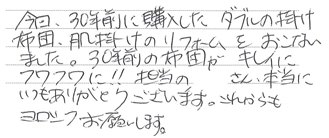 今回、30年前に購入した ダブルの掛け
布団、肌掛けのリフォーム を おこない
ました。30年前の布団が キレイに
フワフワに!! 担当の さん、本当に
いつもありがとうございます。これからも
ヨロシクお願いします。